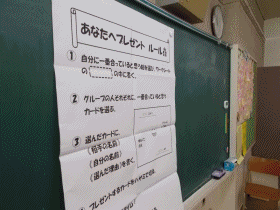 あなたへプレゼント ルール
① 自分に一番合っていると思う
の　　　の中に書く。
② グループの人それぞれに、一番合っていると思う
カードを選ぶ。
③ 選んだカードに、
(相手の名前)
(自分の名前)
(選んだ理由)を書く。
プレゼントするカードを